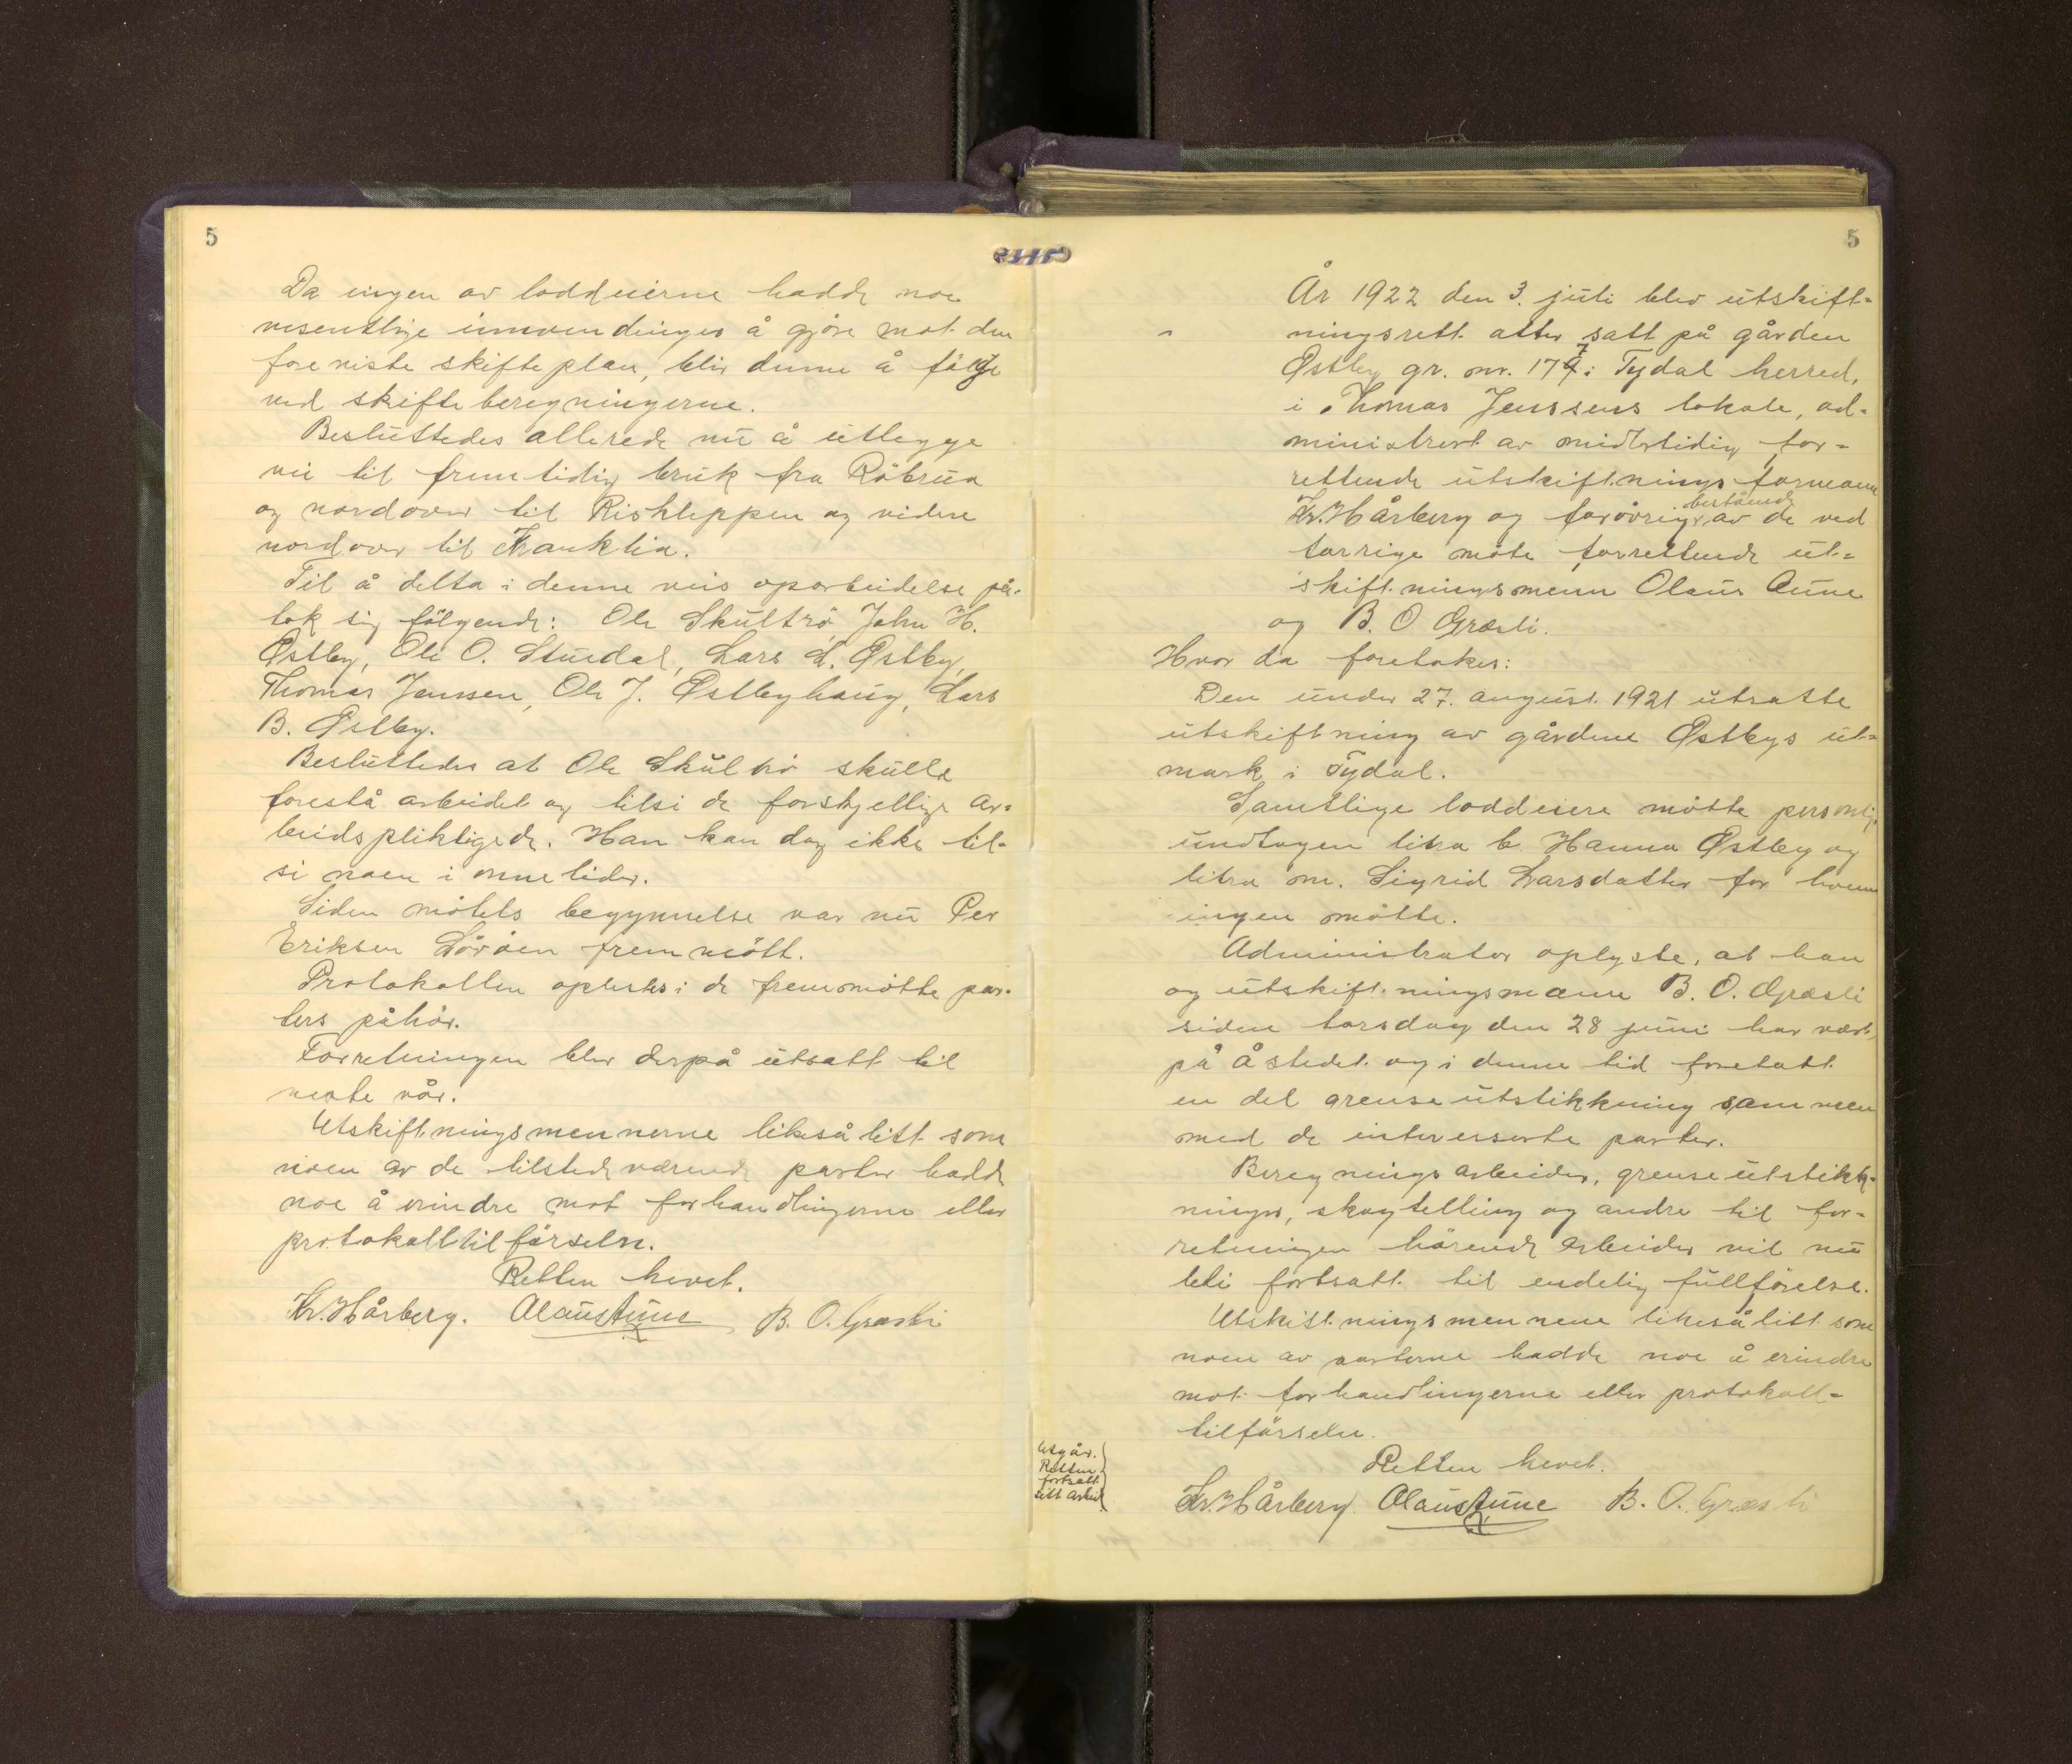 5
Da ingen av loddeierne hadde noe
vesentlige innvendinger å gjöre mot den
foreviste skifteplan, blir denne å fölge
ved skifteberegningerne.
Besluttedes allerede nu å utlegge
vei til fremtidig bruk fra Råbrua
og nordover til Riskleppen og videre
nordover til
Til å delta i denne veis oparbeidelse på-
tok sig fölgende: Ole Skultrö, John H.
Østby, Ole O. Stuedal, Lars L. Østby,
Thomas Jenssen, Ole J. Østbyhaug, Lars
B. Østby.
Besluttedes at Ole Skultrö skulle
forestå arbeidet og tilsi de forskjellige ar-
beidspliktigede. Han kan dog ikke til-
si noen i onnetider.
Siden mötets begynnelse var nu Per
Eriksen fremmött.
Protokollen oplestes i de fremmötte par-
ters påhör.
Forretningen blev derpå utsatt til
neste vår.
Utskiftningsmennerne likeså litt som
noen av de tilstedeværende parter hadde
noe å erindre mot forhandlingerne eller
protokolltilförselen.
Retten hevet.
Kr. Hårberg. Olaus Aune B. O. Græsli
5
År 1922 den 3. juli blev utskift-
ningsrett atter satt på gården
Østby gr. nr. 177 i Tydal herred,
i Thomas Jenssens lokale, ad-
ministrert av midlertidig for-
rettende utskiftningsformann
bestående
Kr. Hårberg og forövrig av de ved
forrige möte forrettende ut-
skiftningsmenn Olaus Aune
og B. O Græsli.
Hvor da foretokes:
Den under 27. august 1921 utsatte
utskiftning av gårdene Østbys ut-
mark i Tydal.
Samtlige loddeiere mötte personlig,
undtagen litra b Hanna Østby og
litra m. Sigrid Larsdatter for hvem
ingen mötte.
Administrator oplyste, at han
og utskiftningsmann B. O. Græsli
siden torsdag den 28 juni har vært
på åstedet og i denne tid foretatt
en del grenseutstikkning sammen
med de interesserte parter.
Beregningsarbeider, grenseutstikk-
ninger, skogtelling og andre til for-
retningen hörende arbeider vil nu
bli fortsatt til endelig fullförelse.
Utskiftningsmennene likeså litt som
noen av parterne hadde noe å erindre
mot forhandlingerne eller protokoll-
tilförselen.
Retten hevet.
Utgår.
Retten
fortsatt
sitt arbeid
Kr. Hårberg Olaus Aune B. O. Græsli